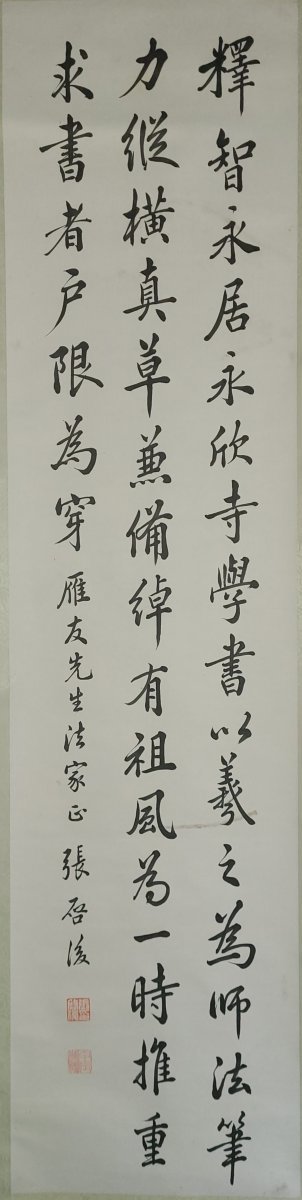 釋智永居永欣寺學書以羲之為師法筆
力縱橫真草兼備綽有祖風為一時推重
求書者戶限為穿雁友先生法家正張啓後